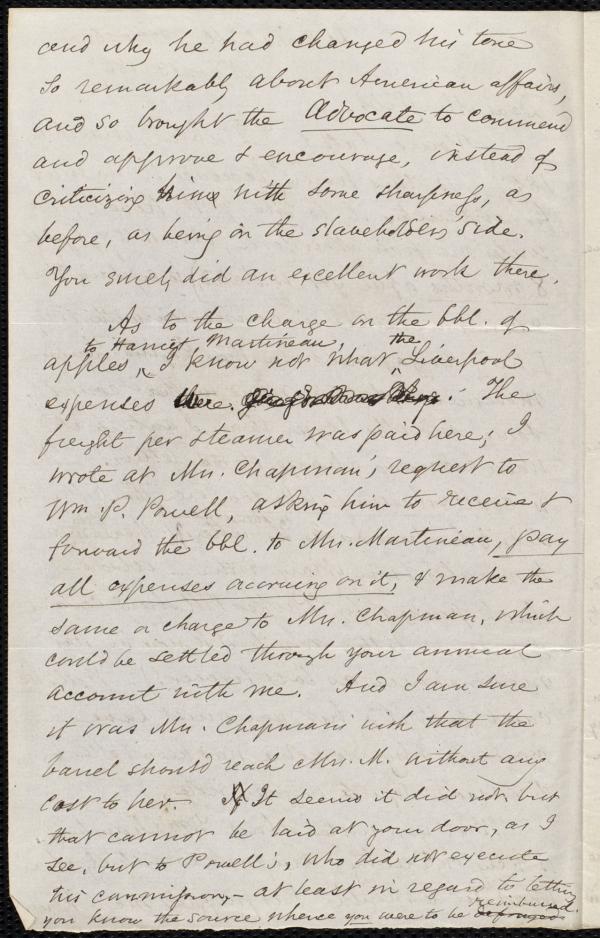 and why he had changed his tone
so remarkably about American affairs,
and so brought the Advocate to commend
and approve & encourage, instead of
criticizing with some sharpness, as
before, as being on the slaveholders' side.
You surely did an excellent work there.
As to the charge on the bbl. of
to Harriet Martineau, the
apples, I know not what Liverpool
expenses were. The
freight per steamer was paid here; I
wrote at Mrs. Chapman's request to
Wm. P. Powell, asking him to receive &
forward the bbl. to Mrs. Martineau, pay
all expenses accruing on it, & make the
same a charge to Mrs. Chapman, which
could be settled through your annual
account with me. And I am sure
it was Mrs. Chapman's wish that the
barrel should reach Mrs. M. without any
cost to her. It seems it did not, but
that cannot be laid at your door, as I
see, but to Powell's, who did not execute
his commission,- at least in regard to letting
reimbursed.
you know the source whence you were to be